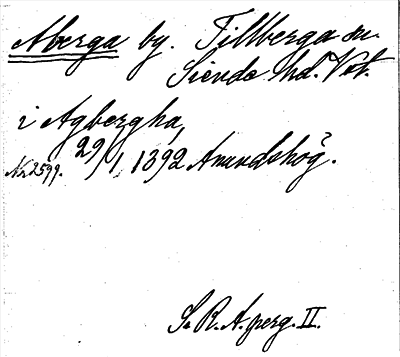 Aberga by. Tillberga sn.
Siende hd. Vstm.
i Agbergha,
Nr 2599. 29/1 1392 Anundshög?.
S. R. A. perg. II.